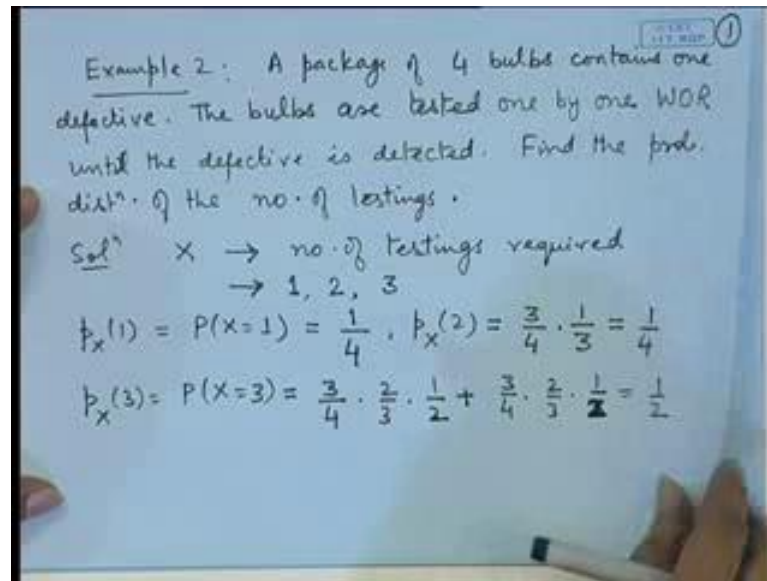 1
Example 2: A package of 4 bulbs contains one
defective. The bulbs are tested one by one WOR
until the defective is detected. Find the prob.
distⁿ. of the no. of testings.
Solⁿ X → no. of testings required
→ 1, 2, 3
p_X(1) = P(X=1) = 1/4, p_X(2) = 3/4 · 1/3 = 1/4
p_X(3) = P(X=3) = 3/4 · 2/3 · 1/2 + 3/4 · 2/3 · 1/2 = 1/2